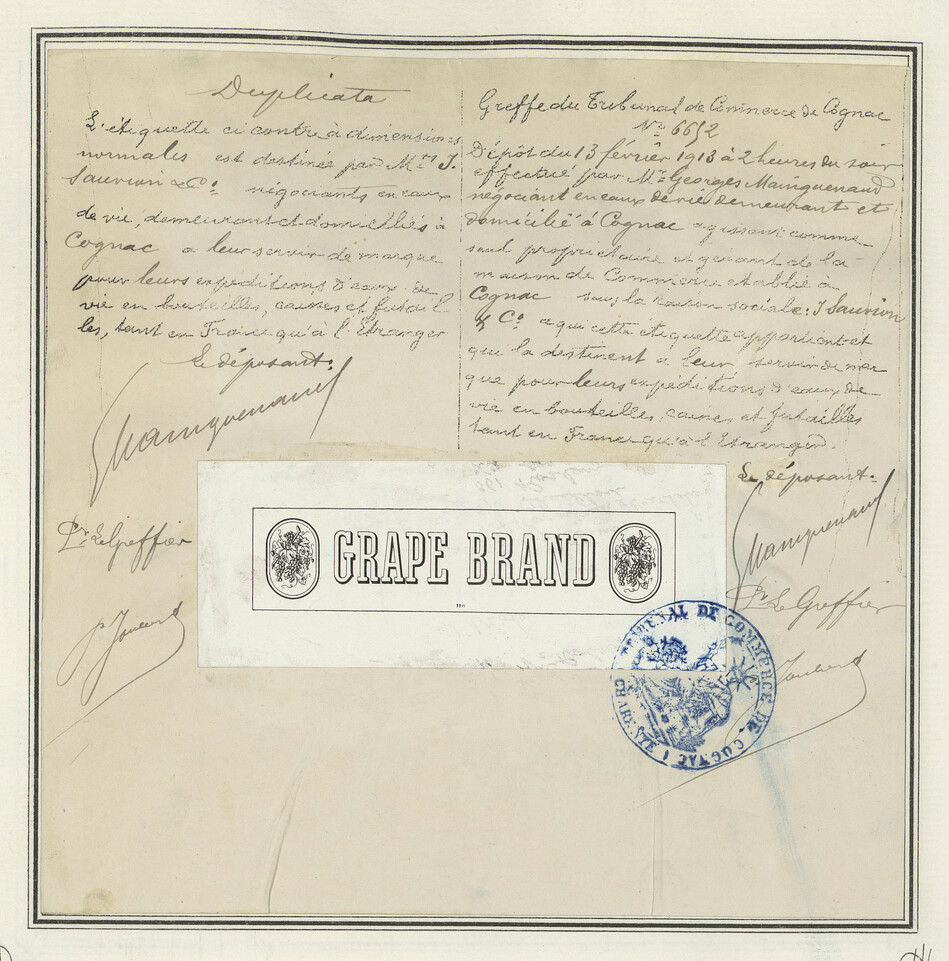 Duplicata
L'étiquette ci contre à dimensions
normales est destinée par Mrs J.
Sauvion & Co. négociants en eaux
de vie, demeurant et domiciliés à
Cognac a leur servir de marque
pour leurs expéditions d'eaux de
vie en bouteilles, caisses et futail
les, tant en France qu'à l'Etranger
Le déposant:
Mainguenaud
Pr. Le Greffier
Greffe du Tribunal de Commerce de Cognac
No 6652
Dépôt du 13 février 1913 à 2 heures du soir
effectué par Mr. Georges Mainguenaud
négociant en eaux de vie demeurant et
domicilié à Cognac agissant comme
seul propriétaire et gérant de la
maison de Commerce etablie à
Cognac sous la raison sociale: J Sauvion
& Co. à qui cette étiquette appartient et
qui la destinent a leur servir de mar
que pour leurs expéditions d'eaux de
vie en bouteilles, caisses et futailles
tant en France qu'à l'Etranger.
Le déposant:
Mainguenaud
Pr Le Greffier
GRAPE BRAND
TRIBUNAL DE COMMERCE DE COGNAC
CHARENTE